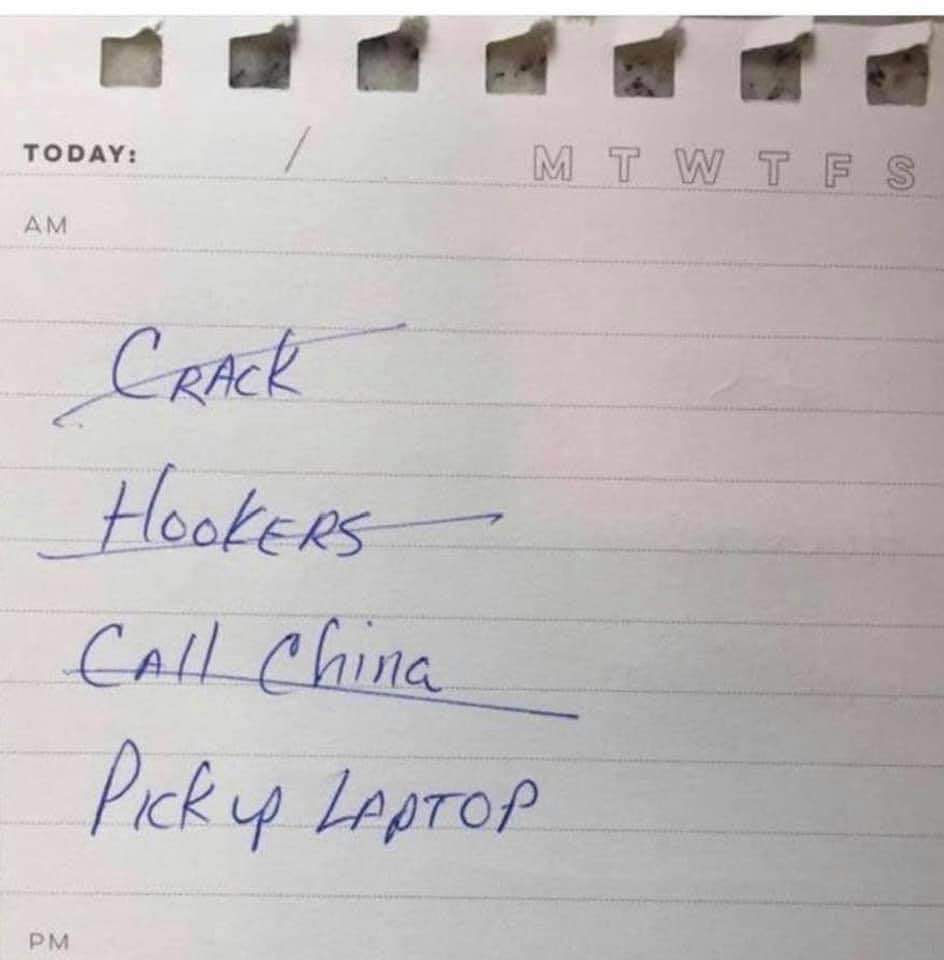 TODAY: / M T W T F S
AM
CRACK
HOOKERS
CALL China
Pick up LAPTOP
PM